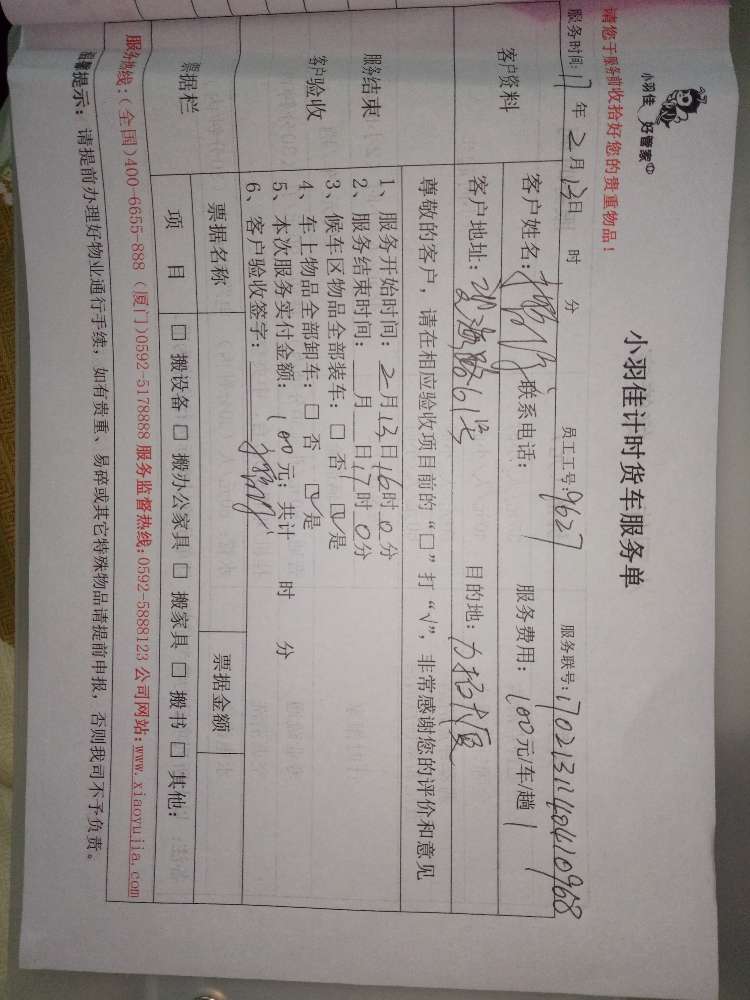 小羽佳 好管家
请您于服务前收拾好您的贵重物品！
小羽佳计时货车服务单
服务时间：17年2月13日 时 分 员工工号：9627 服务联号：1702131140410968
客户资料
客户姓名： 联系电话： 服务费用：100元/车/趟
客户地址：望海路61号 目的地：力拓大厦
尊敬的客户，请在相应验收项目前的“□”打“√”，非常感谢您的评价和意见
服务结束
客户验收
1、服务开始时间：2月13日16时0分
2、服务结束时间： 月 日17时0分
3、候车区物品全部装车：□ 否 ☑是
4、车上物品全部卸车：□ 否 ☑是
5、本次服务实付金额：100元；共计 时 分
6、客户验收签字：
票据栏
票据名称 票据金额
项 目 □ 搬设备 □ 搬办公家具 □ 搬家具 □ 搬书 □ 其他：
服务热线：(全国)400-6655-888 (厦门)0592-5178888 服务监督热线：0592-5888123 公司网站：www.xiaoyujia.com
温馨提示：请提前办理好物业通行手续，如有贵重、易碎或其它特殊物品请提前申报，否则我司不予负责。